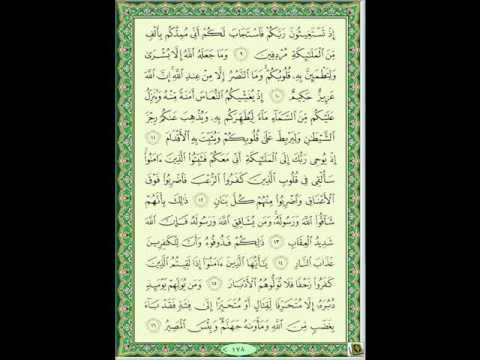 إِذْ تَسْتَغِيثُونَ رَبَّكُمْ فَٱسْتَجَابَ لَكُمْ أَنِّى مُمِدُّكُم بِأَلْفٍ
مِّنَ ٱلْمَلَـٰٓئِكَةِ مُرْدِفِينَ ٩ وَمَا جَعَلَهُ ٱللَّهُ إِلَّا بُشْرَىٰ
وَلِتَطْمَئِنَّ بِهِۦ قُلُوبُكُمْ ۚ وَمَا ٱلنَّصْرُ إِلَّا مِنْ عِندِ ٱللَّهِ ۚ إِنَّ ٱللَّهَ
عَزِيزٌ حَكِيمٌ ١٠ إِذْ يُغَشِّيكُمُ ٱلنُّعَاسَ أَمَنَةً مِّنْهُ وَيُنَزِّلُ
عَلَيْكُم مِّنَ ٱلسَّمَآءِ مَآءً لِّيُطَهِّرَكُم بِهِۦ وَيُذْهِبَ عَنكُمْ رِجْزَ
ٱلشَّيْطَـٰنِ وَلِيَرْبِطَ عَلَىٰ قُلُوبِكُمْ وَيُثَبِّتَ بِهِ ٱلْأَقْدَامَ ١١
إِذْ يُوحِى رَبُّكَ إِلَى ٱلْمَلَـٰٓئِكَةِ أَنِّى مَعَكُمْ فَثَبِّتُوا۟ ٱلَّذِينَ ءَامَنُوا۟ ۚ
سَأُلْقِى فِى قُلُوبِ ٱلَّذِينَ كَفَرُوا۟ ٱلرُّعْبَ فَٱضْرِبُوا۟ فَوْقَ
ٱلْأَعْنَاقِ وَٱضْرِبُوا۟ مِنْهُمْ كُلَّ بَنَانٍ ١٢ ذَٰلِكَ بِأَنَّهُمْ
شَآقُّوا۟ ٱللَّهَ وَرَسُولَهُۥ ۚ وَمَن يُشَاقِقِ ٱللَّهَ وَرَسُولَهُۥ فَإِنَّ ٱللَّهَ
شَدِيدُ ٱلْعِقَابِ ١٣ ذَٰلِكُمْ فَذُوقُوهُ وَأَنَّ لِلْكَـٰفِرِينَ
عَذَابَ ٱلنَّارِ ١٤ يَـٰٓأَيُّهَا ٱلَّذِينَ ءَامَنُوٓا۟ إِذَا لَقِيتُمُ ٱلَّذِينَ
كَفَرُوا۟ زَحْفًا فَلَا تُوَلُّوهُمُ ٱلْأَدْبَارَ ١٥ وَمَن يُوَلِّهِمْ يَوْمَئِذٍ
دُبُرَهُۥٓ إِلَّا مُتَحَرِّفًا لِّقِتَالٍ أَوْ مُتَحَيِّزًا إِلَىٰ فِئَةٍ فَقَدْ بَآءَ
بِغَضَبٍ مِّنَ ٱللَّهِ وَمَأْوَىٰهُ جَهَنَّمُ ۖ وَبِئْسَ ٱلْمَصِيرُ ١٦
١٧٨